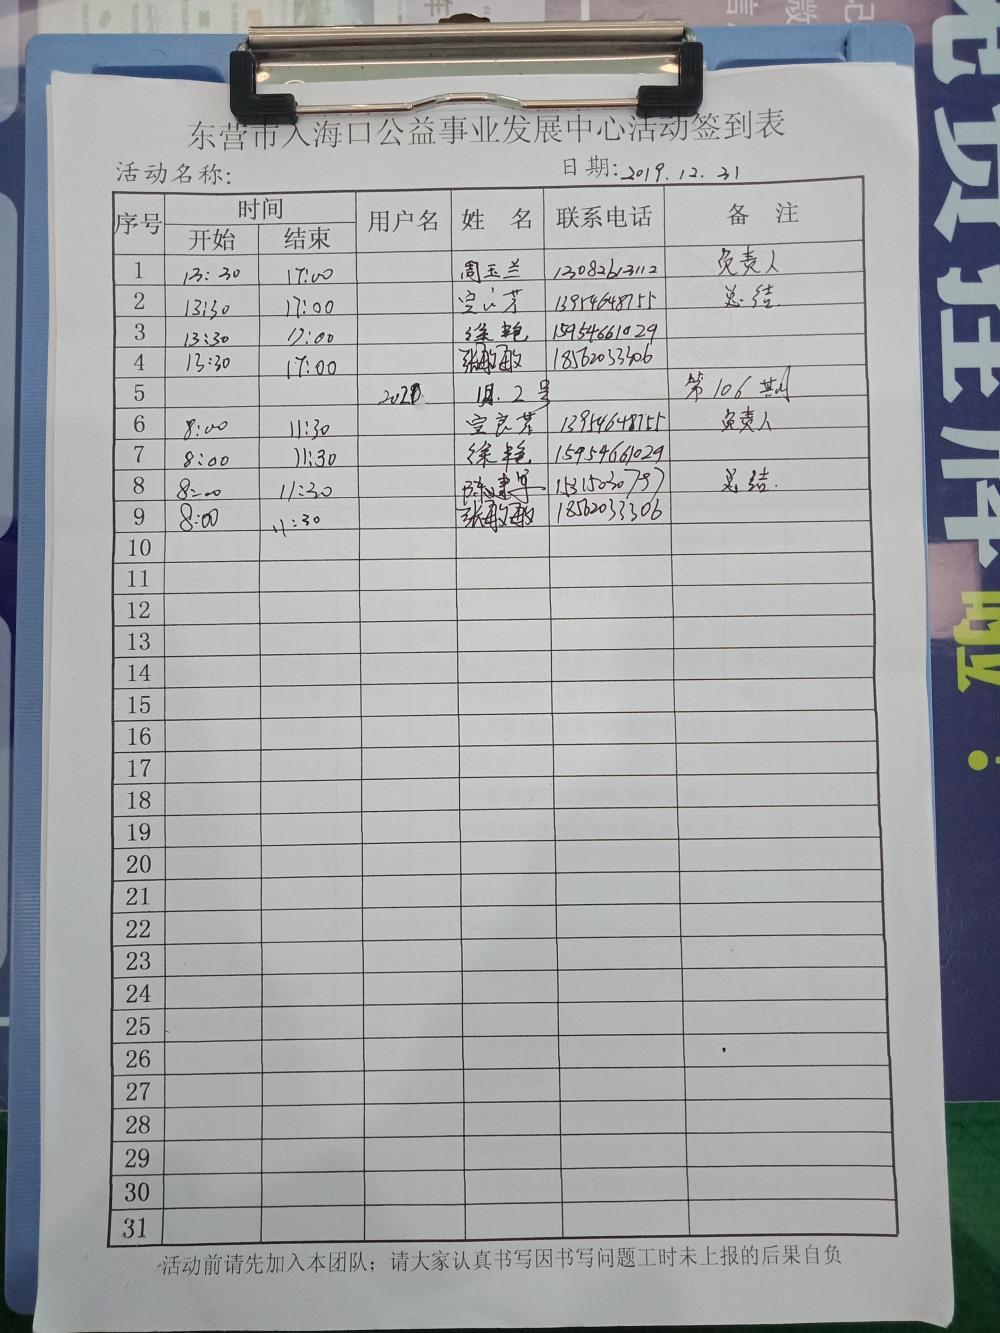 东营市入海口公益事业发展中心活动签到表
活动名称: 日期: 2019.12.31
序号 时间 用户名 姓 名 联系电话 备 注
开始 结束
1 13:30 17:00 周玉兰 13082613112 负责人
2 13:30 17:00 芳 13954648755 总结
3 13:30 17:00 徐艳 15954661029
4 13:30 17:00 张敏敏 18562033306
5 1月.2号 第106期
6 8:00 11:30 良芳 13954648755 负责人
7 8:00 11:30 徐艳 15954661029
8 8:00 11:30 陈建军 总结
9 8:00 11:30 张敏敏 18562033306
10
11
12
13
14
15
16
17
18
19
20
21
22
23
24
25
26
27
28
29
30
31
活动前请先加入本团队；请大家认真书写因书写问题工时未上报的后果自负